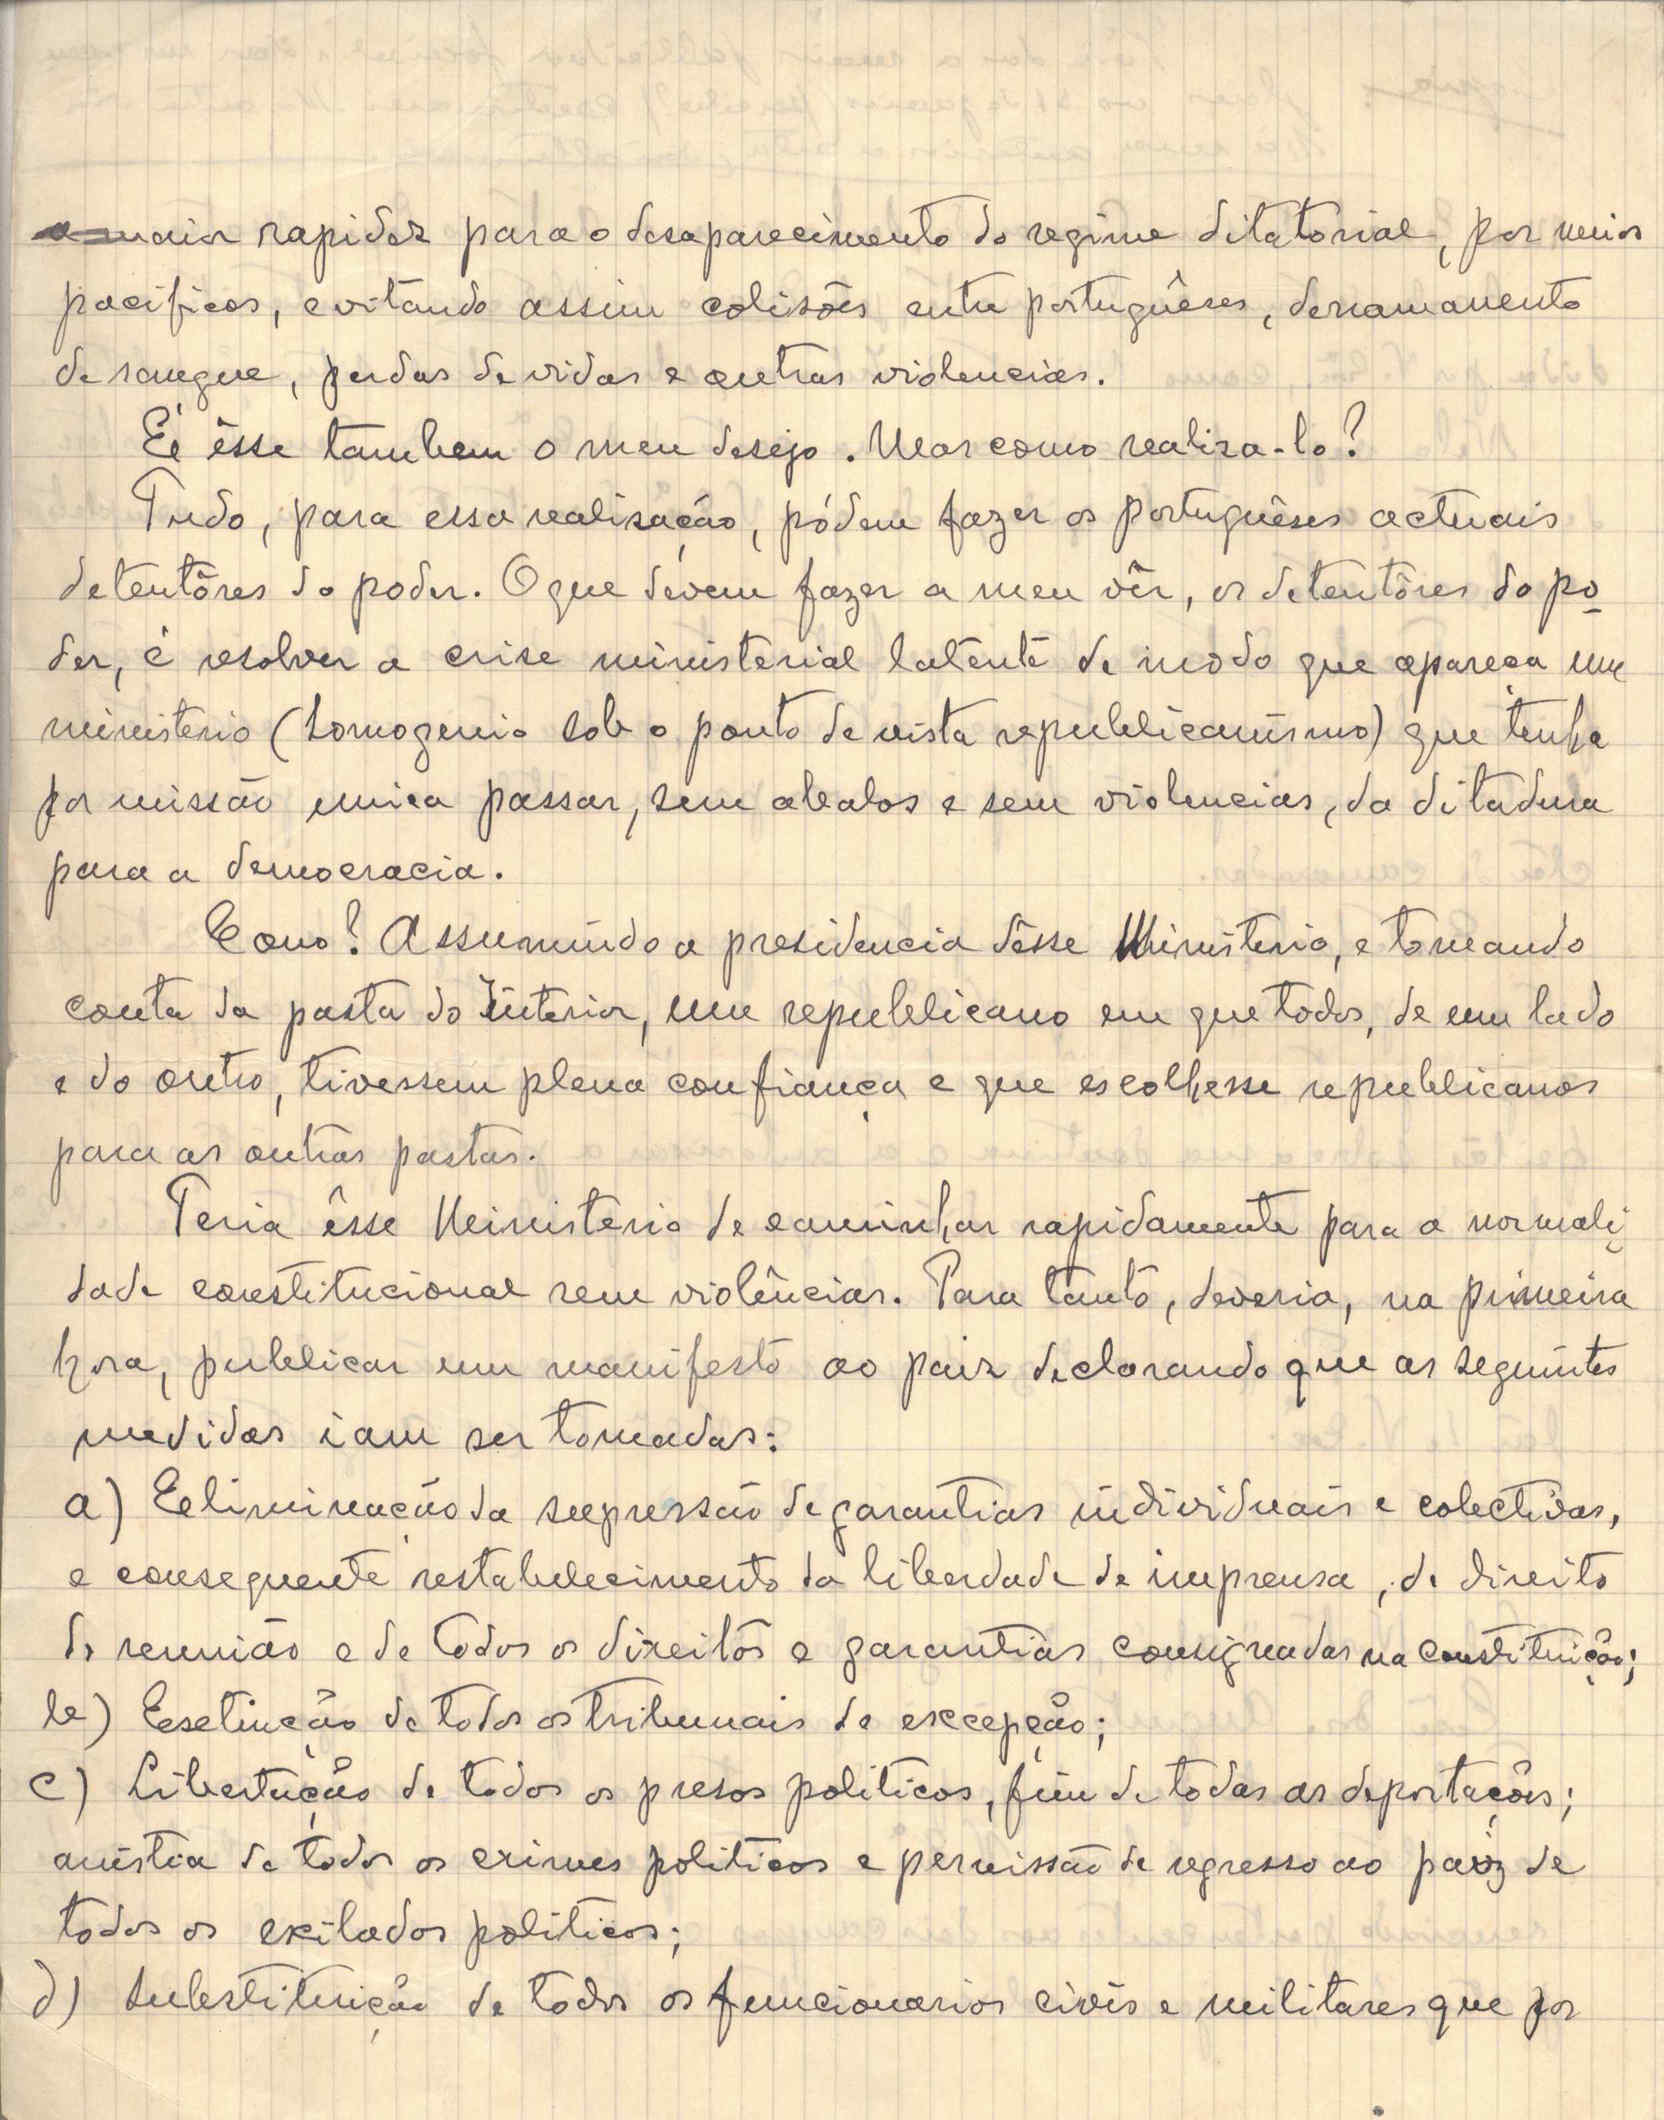 maior rapidez para o desaparecimento do regime ditatorial, por meios
pacificos, evitando assim colisões entre portuguêses, derramamento
de sangue, perdas de vidas e outras violencias.
É êsse tambem o meu desejo. Mas como realiza-lo?
Tudo, para essa realisação, pódem fazer os portuguêses actuais
detentôres do poder. O que devem fazer a meu vêr, os detentôres do po
der, é resolver a crise ministerial latente de modo que apareça um
ministerio (homogenio sob o ponto de vista republicanismo) que tenha
por missão unica passar, sem abalos e sem violencias, da ditadura
para a democracia.
Como? Assumindo a presidencia dêsse Ministerio, e tomando
conta da pasta do Interior, um republicano em que todos, de um lado
e do outro, tivessem plena confiança e que escolhesse republicanos
para as outras pastas.
Teria êsse Ministério de caminhar rapidamente para a normali
dade constitucional sem violências. Para tanto, deveria, na primeira
hora, publicar um manifesto ao paiz declarando que as seguintes
medidas iam ser tomadas:
a) Eliminação da supressão de garantias individuais e colectivas,
e consequente restabelecimento da liberdade de imprensa, do direito
de reunião e de todos os direitos e garantias consignadas na Constituição;
b) Extinção de todos os tribunais de excepção;
c) Libertação de todos os presos politicos, fim de todas as deportações;
amistia de todos os crimes politicos e permissão de regresso ao paiz de
todos os exilados politicos;
d) Substituição de todos os funcionarios civis e militares que por